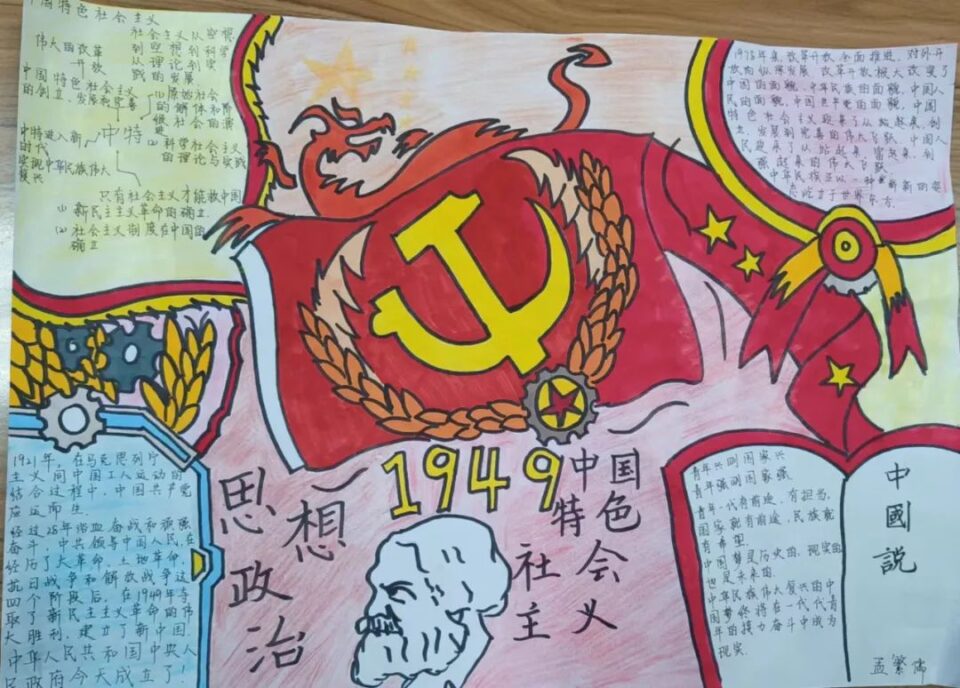 中国特色社会主义
伟大的改革
开放
中国特色社会主义
的创立、发展和完善
中特进入新
时代
实现中华民族伟大
复兴
中特
社会主义从空想
到空想到科学
从理论到实
践的发展
(1) 原始社会
的解体和阶
级社会的演
进
(2) 科学社会主义
的理论与实践
只有社会主义才能救中国
(1) 新民主主义革命的确立
(2) 社会主义制度在中国的
确立
1978年来,改革开放全面推进,对外开
放向纵深发展,改革开放极大改变了
中国的面貌、中华民族的面貌、中国人
民的面貌、中国共产党的面貌,中国
特色社会主义迎来了从
立、发展到完善的伟大飞跃,中国人
民迎来了从站起来、富起来、到
强起来的伟大飞跃
中华民族正以一种 新的姿
屹立于世界东方
1921年,在马克思列宁
主义同中国工人运动的
结合过程中,中国共产党
应运而生
经过28年浴血奋战和顽强
奋斗,中共领导中国人民在
经历了大革命、土地革命、
抗日战争和解放战争这
四个阶段后,在1949年夺
取了新民主主义革命的伟
大胜利,建立了新中国.
中华人民共和国中央人
民政府今天成立了!
思想
政治
1949
中国
特色
社会
主义
青年兴则国家兴
青年强则国家强
青年一代有前途,有担当,
国家就有前途,民族就
有希望.
中国梦是历史的、现实的
也是未来的
中华民族伟大复兴的中
国梦终将在一代代青
年的接力奋斗中成为
现实.
中國説
孟繁伟